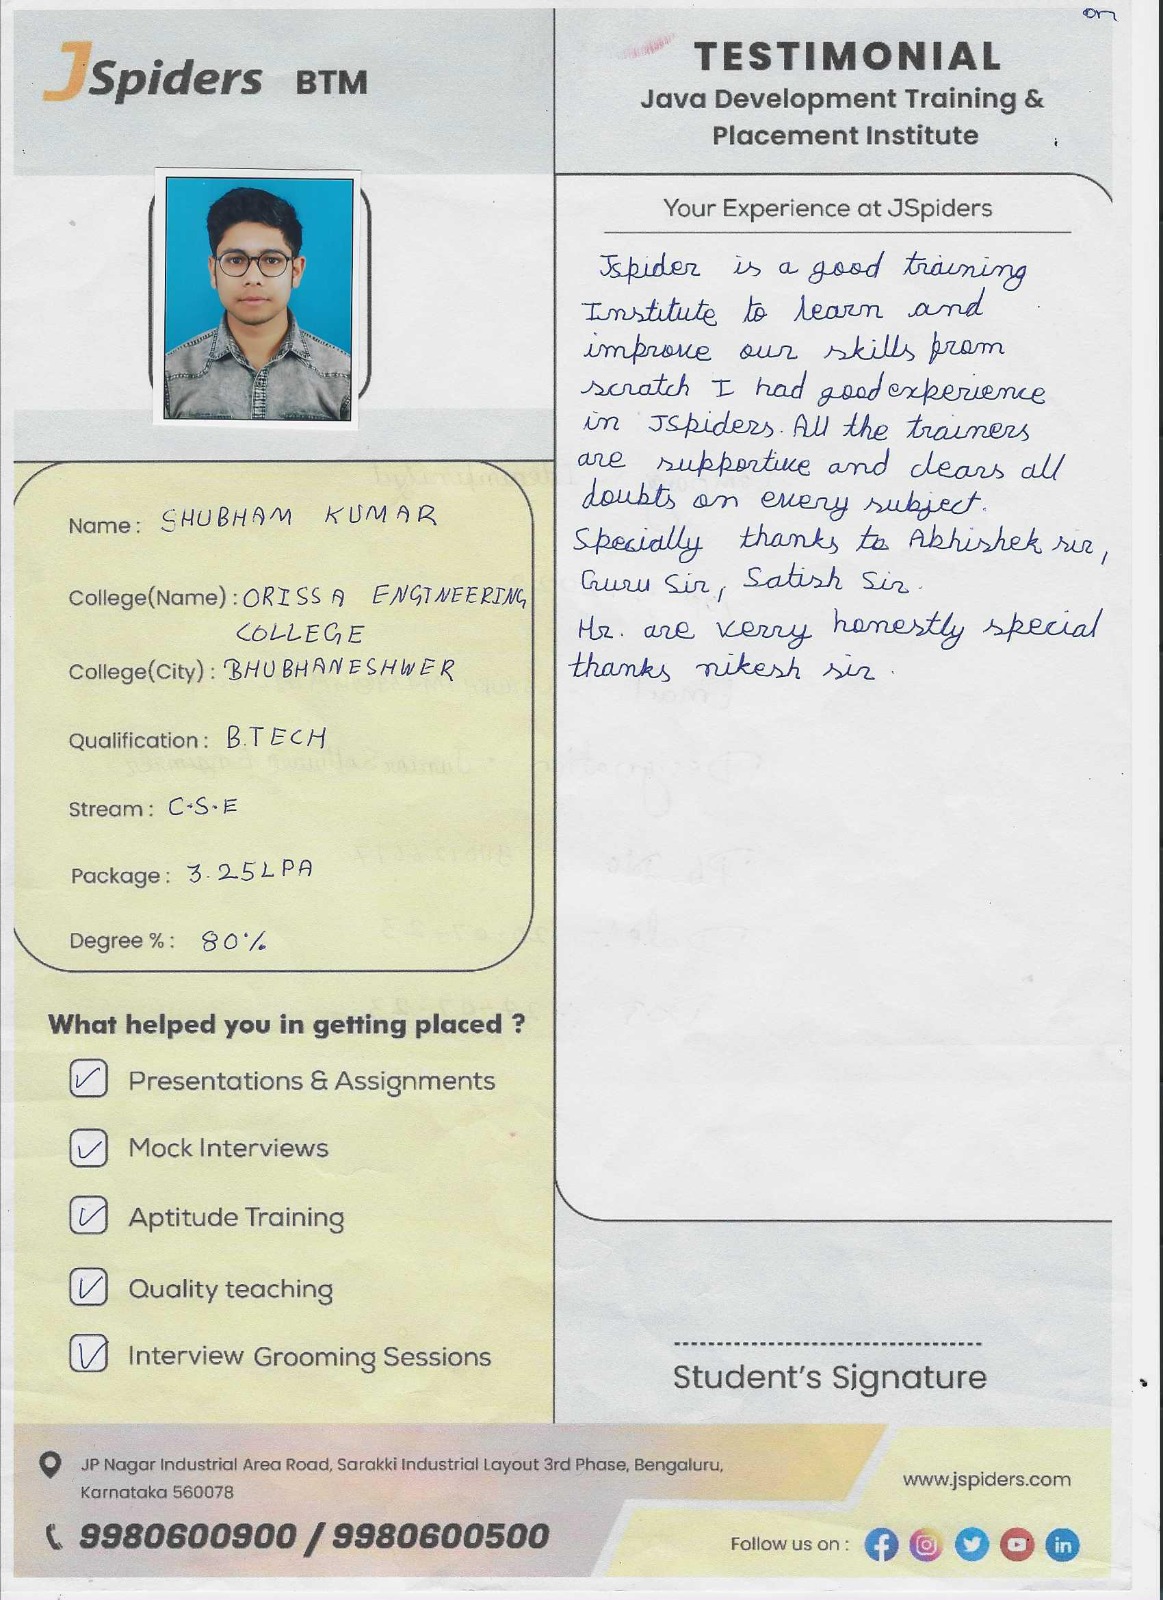 on
JSpiders BTM
TESTIMONIAL
Java Development Training &
Placement Institute
Your Experience at JSpiders
Jspider is a good training
Institute to learn and
improve our skills from
scratch I had good experience
in JSpiders. All the trainers
are supportive and clears all
doubts on every subject.
Specially thanks to Abhishek sir,
Guru Sir, Satish Sir.
Hr. are verry honestly special
thanks nikesh sir.
Name: SHUBHAM KUMAR
College(Name): ORISSA ENGINEERING
COLLEGE
College(City): BHUBHANESHWER
Qualification: B.TECH
Stream: C.S.E
Package: 3.25LPA
Degree %: 80%
What helped you in getting placed ?
Presentations & Assignments
Mock Interviews
Aptitude Training
Quality teaching
Interview Grooming Sessions
Student's Signature
JP Nagar Industrial Area Road, Sarakki Industrial Layout 3rd Phase, Bengaluru,
Karnataka 560078
9980600900 / 9980600500
www.jspiders.com
Follow us on :